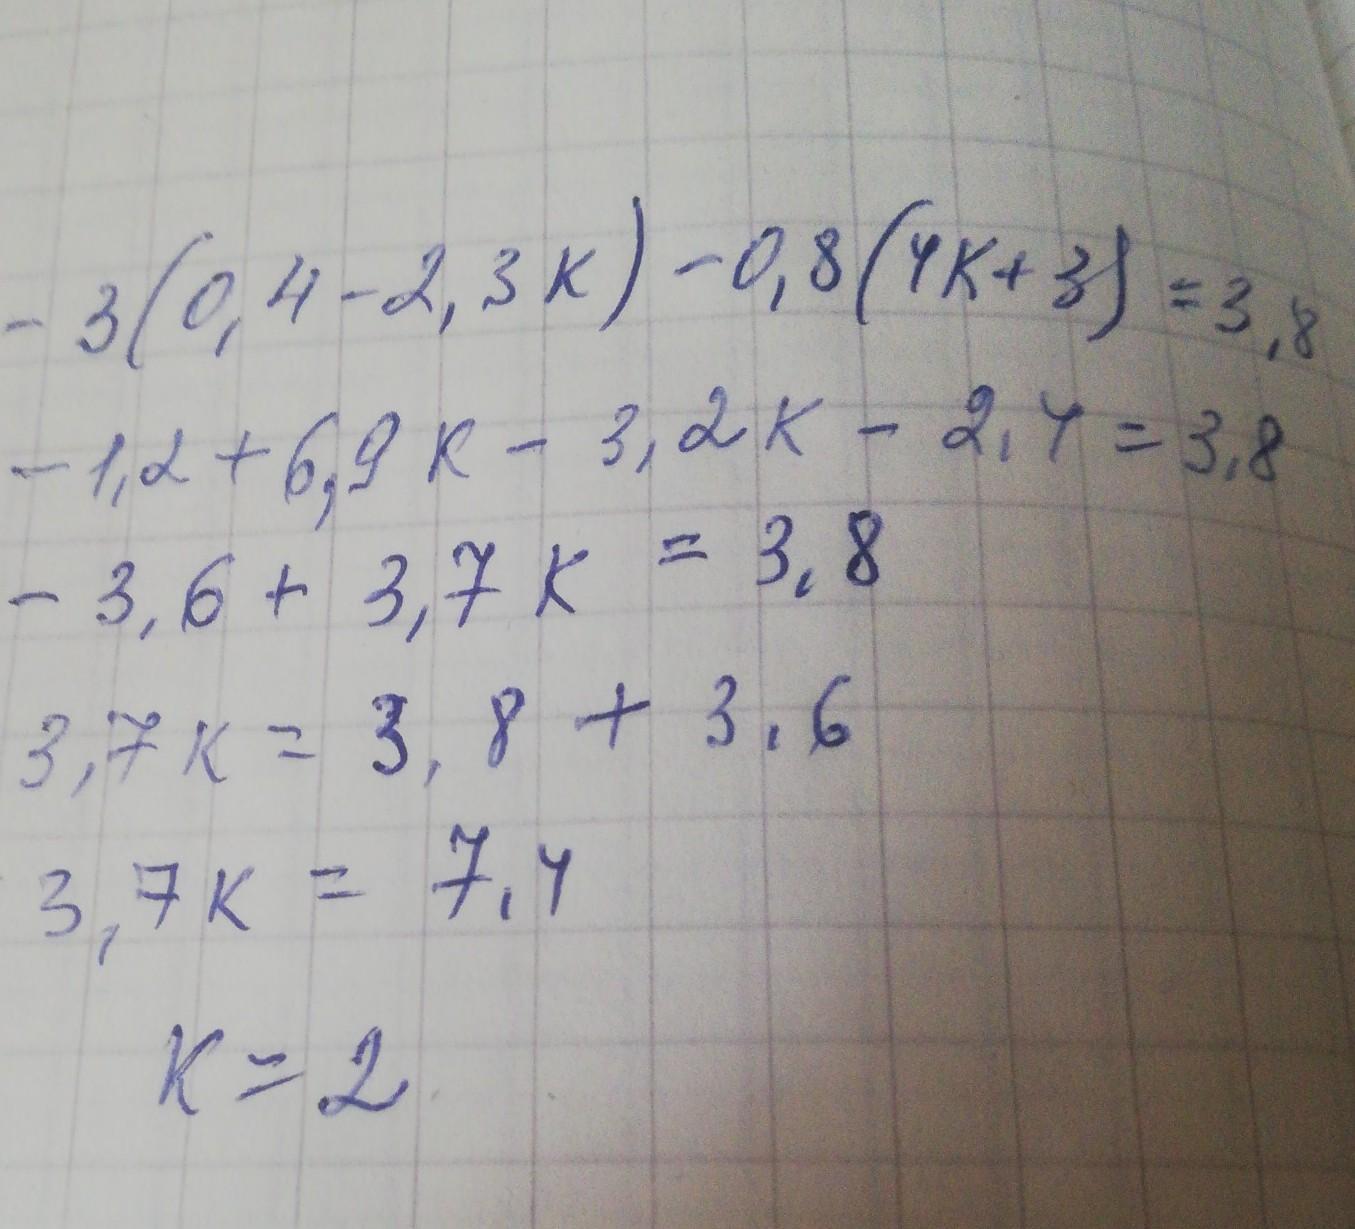 - 3(0,4-2,3к) -0,8(4к+3) =3,8
-1,2+6,9к - 3,2к - 2,4=3,8
- 3,6 + 3,7к = 3,8
3,7к = 3,8 + 3,6
3,7к = 7,4
к = 2